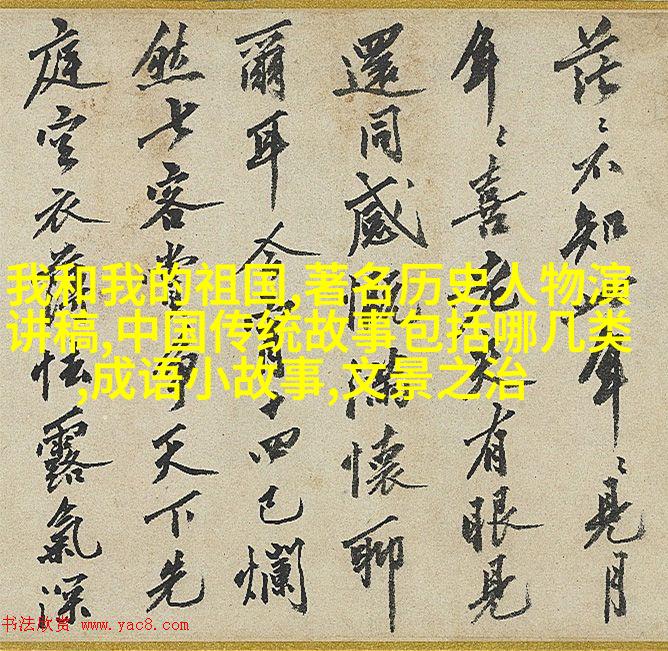 茫々不知年々見月
年々喜老大有眼見
還同感慨滿懷聊
爾耳今宵十四已爛
然七客堂中天下先
庭空衣薄怯露氣深
我和我的祖国,著名历史人物演
讲稿,中国传统故事包括哪几类
,成语小故事,文景之治
书法欣赏 www.yac8.com